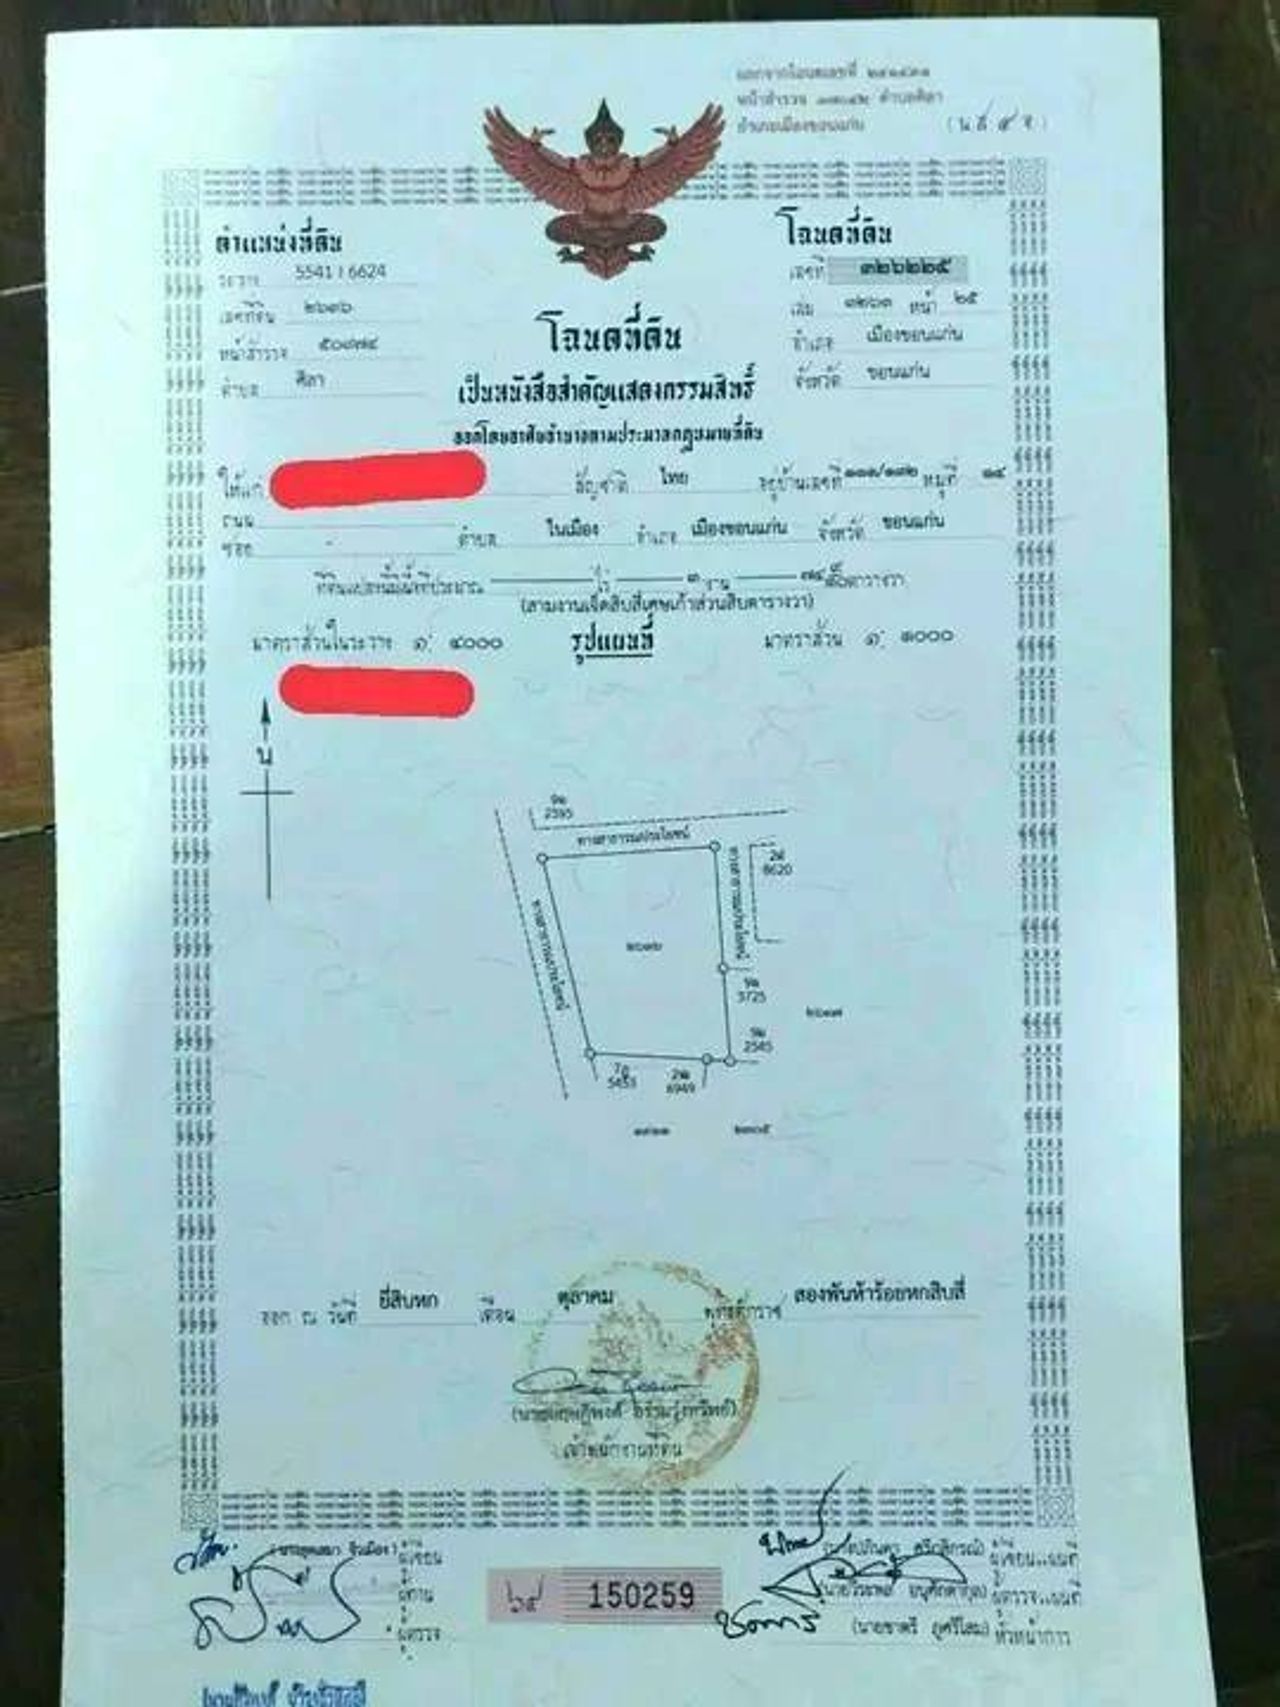 ออกจากโฉนดเลขที่
หน้าสำรวจ ตำบลศิลา
อำเภอเมืองขอนแก่น (น.ส. ๔ จ.)
ตำแหน่งที่ดิน
ระวาง 5541 I 6624
เลขที่ดิน
หน้าสำรวจ
ตำบล ศิลา
โฉนดที่ดิน
เลขที่ ๓๒๖๒๒๕
เล่ม หน้า ๒๕
อำเภอ เมืองขอนแก่น
จังหวัด ขอนแก่น
โฉนดที่ดิน
เป็นหนังสือสำคัญแสดงกรรมสิทธิ์
ออกโดยอาศัยอำนาจตามประมวลกฎหมายที่ดิน
ให้แก่ สัญชาติ ไทย อยู่บ้านเลขที่ หมู่ที่ ๑๔
ถนน
ซอย - ตำบล ในเมือง อำเภอ เมืองขอนแก่น จังหวัด ขอนแก่น
ที่ดินแปลงนี้มีเนื้อที่ประมาณ - ไร่ ๓ งาน ๗๔.๙ ตารางวา
(สามงานเจ็ดสิบสี่เศษเก้าส่วนสิบตารางวา)
มาตราส่วนในระวาง ๑: ๔๐๐๐ รูปแผนที่ มาตราส่วน ๑: ๑๐๐๐
น
2595
ทางสาธารณประโยชน์
ทางสาธารณประโยชน์
8620
ทางสาธารณประโยชน์
3725
2545
5453
8949
ออก ณ วันที่ ยี่สิบหก เดือน ตุลาคม พุทธศักราช สองพันห้าร้อยหกสิบสี่
เจ้าพนักงานที่ดิน
ผู้เขียน
ผู้ทาน
ผู้ตรวจ
๖๔ 150259
ผู้เขียนแผนที่
ผู้ตรวจแผนที่
(นายชาตรี ภูศรีโสม) หัวหน้าการ